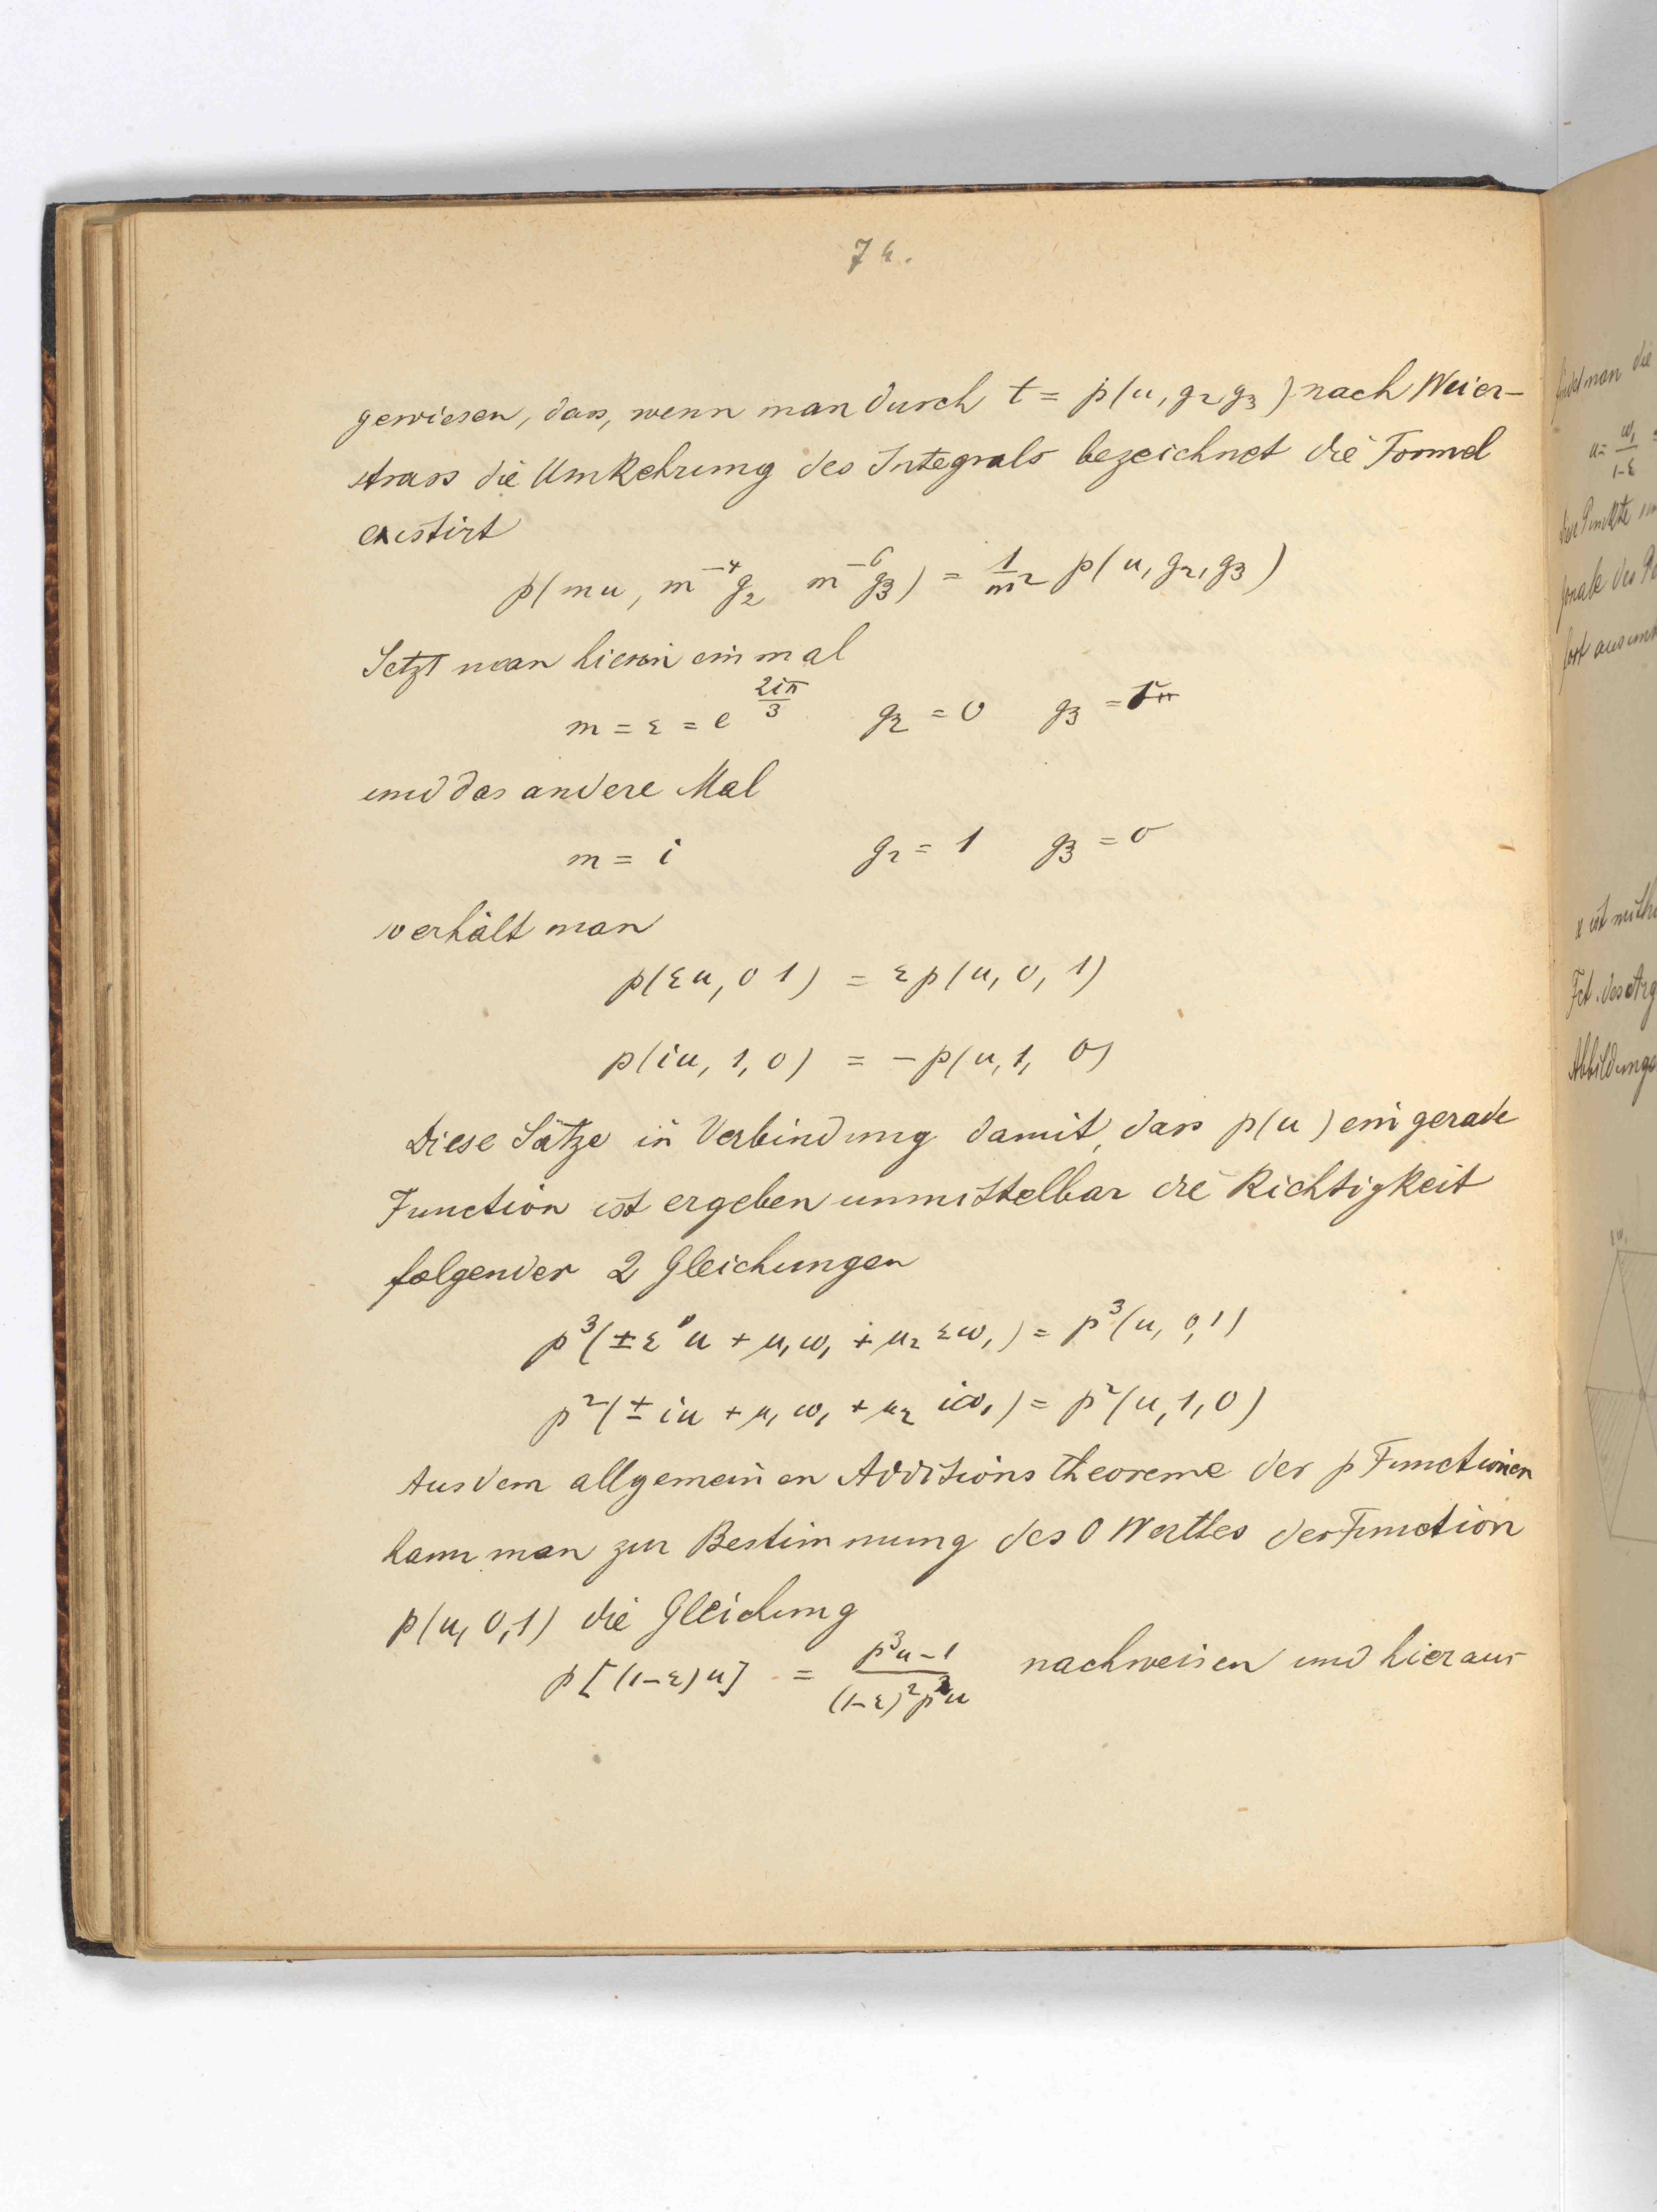 74.
gewiesen, dass, wenn man durch t = p(u, g₂ g₃) nach Weier-
strass die Umkehrung des Integrals bezeichnet die Formel
existirt
p(mu, m⁻⁴g₂ m⁻⁶g₃) = 1/m² p(u, g₂, g₃)
Setzt man hierin einmal
m = ε = e^(2iπ/3) g₂ = 0 g₃ = 1
und das andere Mal
m = i g₂ = 1 g₃ = 0
erhält man
p(εu, 0 1) = εp(u, 0, 1)
p(iu, 1, 0) = −p(u, 1, 0)
Diese Sätze in Verbindung damit, dass p(u) ein gerade
Function ist ergeben unmittelbar die Richtigkeit
folgender 2 Gleichungen
p³(± ε u + μ₁ω₁ + μ₂ εω₁) = p³(u, 0, 1)
p²(± iu + μ₁ω₁ + μ₂ iω₁) = p²(u, 1, 0)
Aus dem allgemeinen Additionstheoreme der p Functionen
kann man zur Bestimmung des 0 Werthes der Function
p(u, 0, 1) die Gleichung
p[(1−ε)u] = (p³u − 1)/((1−ε)²p²u) nachweisen und hieraus
man die
u = ω₁/(1−ε)
der Punkte
x ist mith
Fct. des Arg
Abbildungs